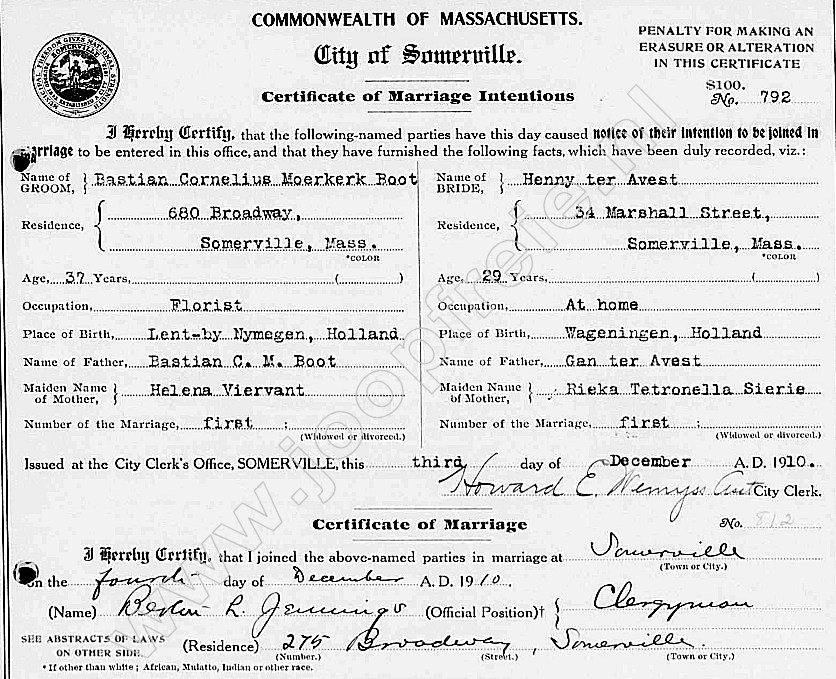 COMMONWEALTH OF MASSACHUSETTS.
City of Somerville.
PENALTY FOR MAKING AN
ERASURE OR ALTERATION
IN THIS CERTIFICATE
$100.
Certificate of Marriage Intentions
No. 792
I Hereby Certify, that the following-named parties have this day caused notice of their intention to be joined in
marriage to be entered in this office, and that they have furnished the following facts, which have been duly recorded, viz.:
Name of GROOM, } Bastian Cornelius Moerkerk Boot
Residence, { 680 Broadway,
Somerville, Mass.
*COLOR
Age, 37 Years, ( )
Occupation, Florist
Place of Birth, Lent-by Nymegen, Holland
Name of Father, Bastian C. M. Boot
Maiden Name of Mother, } Helena Viervant
Number of the Marriage, first :
(Widowed or divorced.)
Name of BRIDE, } Henny ter Avest
Residence, { 34 Marshall Street,
Somerville, Mass.
*COLOR
Age, 29 Years, ( )
Occupation, At home
Place of Birth, Wageningen, Holland
Name of Father, Gan ter Avest
Maiden Name of Mother, } Rieka Tetronella Sierie
Number of the Marriage, first :
(Widowed or divorced.)
Issued at the City Clerk's Office, SOMERVILLE, this third day of December A. D. 1910.
Howard E. Wemyss Asst City Clerk.
Certificate of Marriage
No. 812
I Hereby Certify, that I joined the above-named parties in marriage at Somerville
(Town or City.)
on the fourth day of December A. D. 1910.
(Name) L. Jennings (Official Position)† } Clergyman
SEE ABSTRACTS OF LAWS
ON OTHER SIDE.
(Residence) 275 Broadway, Somerville.
(Number.) (Street.) (Town or City.)
*If other than white; African, Mulatto, Indian or other race.
www.joopfreie.nl